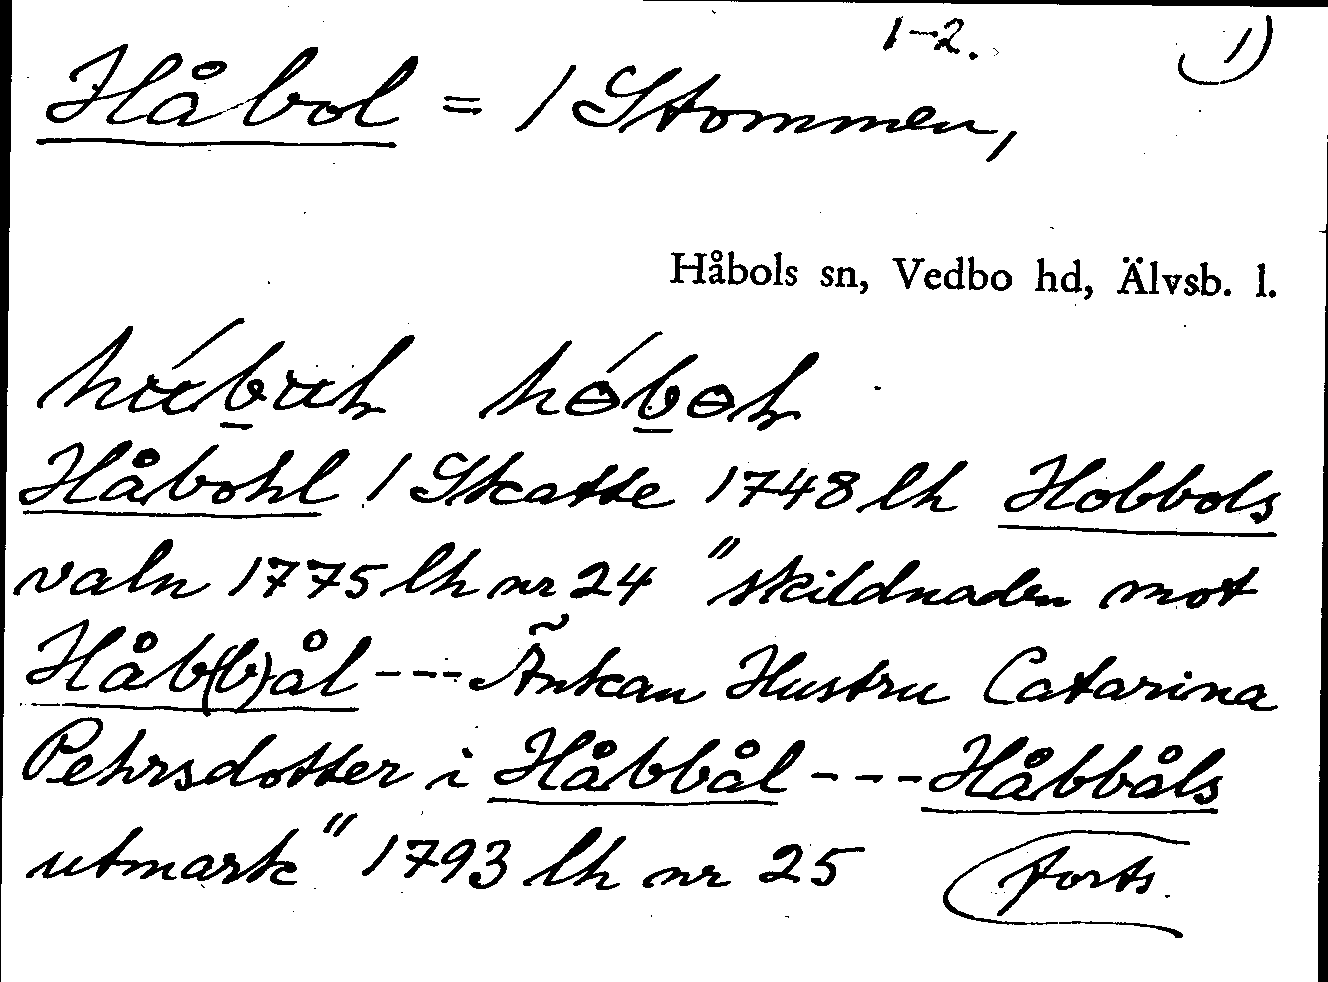 1-2. 1)
Håbol = 1 Stommen,
Håbols sn, Vedbo hd, Älvsb. l.
Håbohl 1 Skatte 1748 lh Hobbols
valn 1775 lh nr 24 "skildnaden mot
Håb(b)ål --- Änkan Hustru Catarina
Pehrsdotter i Håbbål --- Håbbåls
utmark" 1793 lh nr 25 forts.